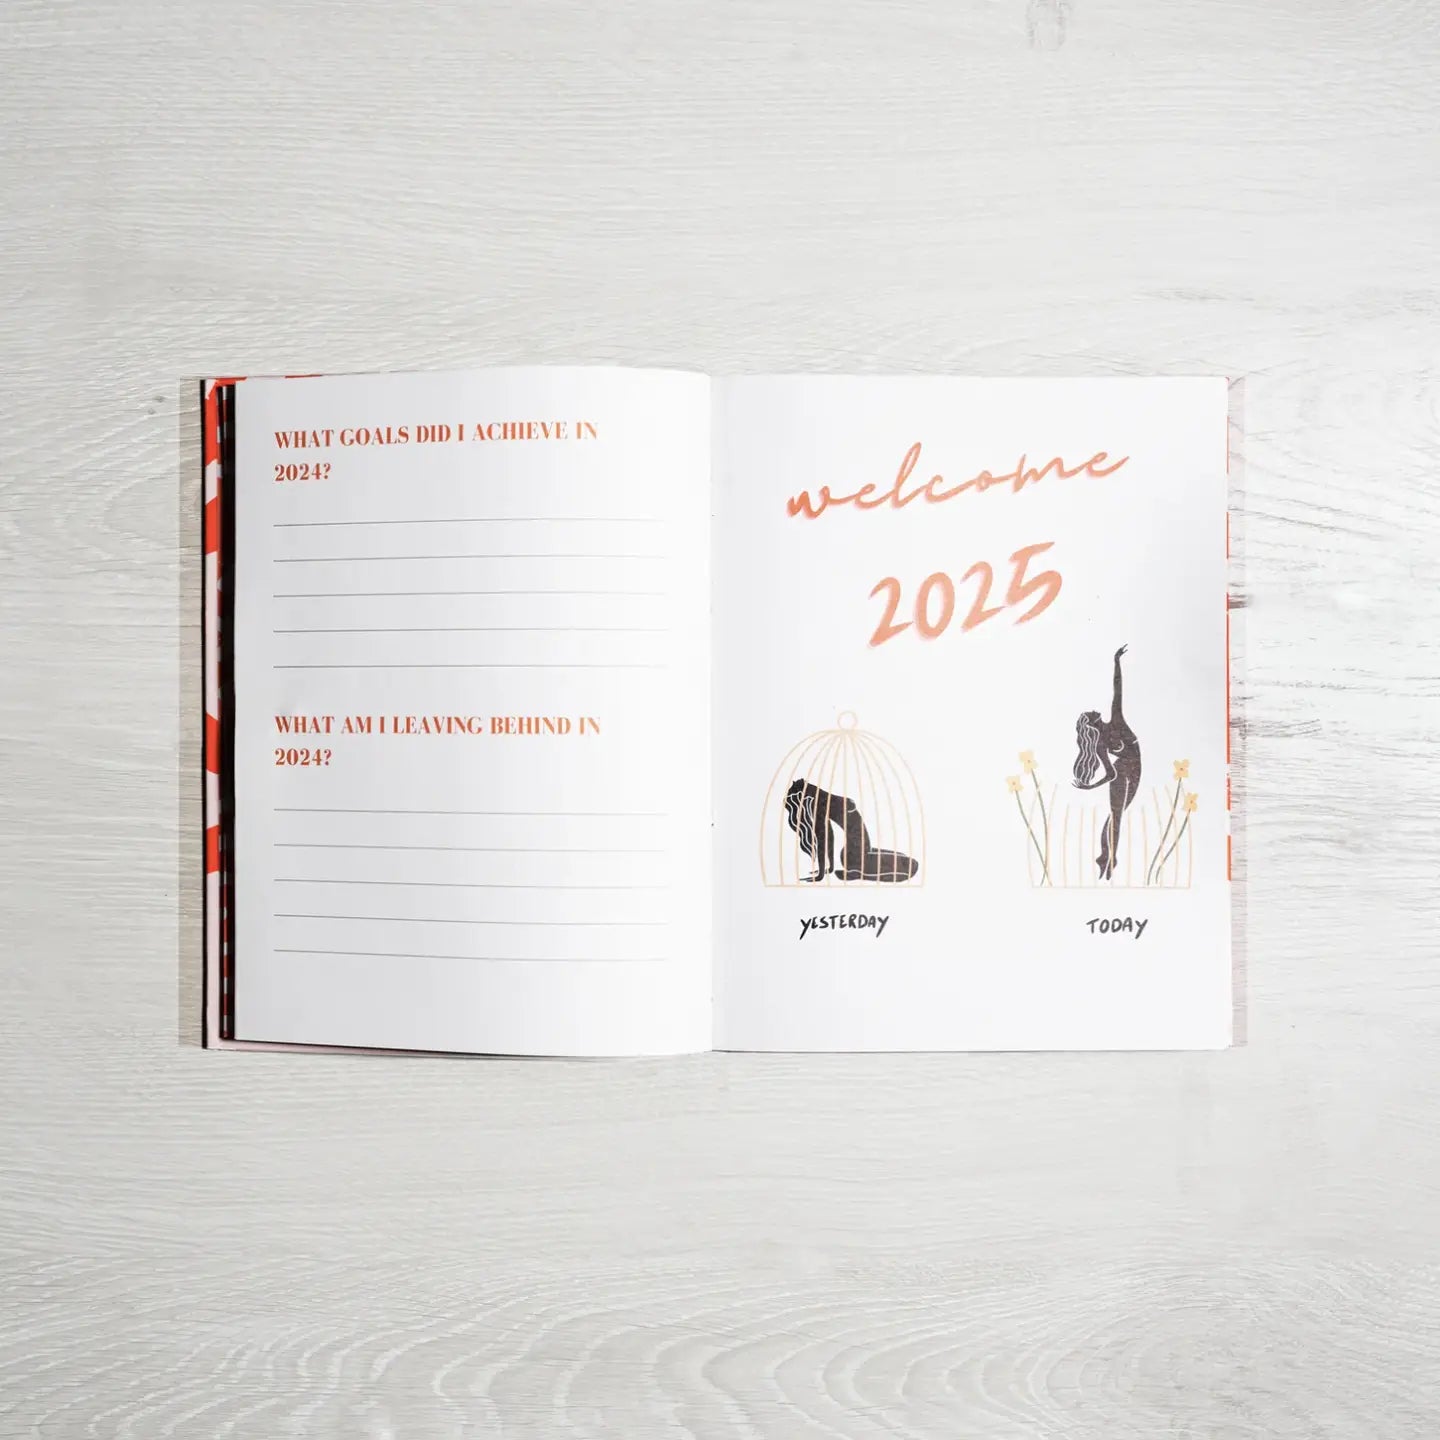 WHAT GOALS DID I ACHIEVE IN
2024?
WHAT AM I LEAVING BEHIND IN
2024?
welcome
2025
YESTERDAY
TODAY